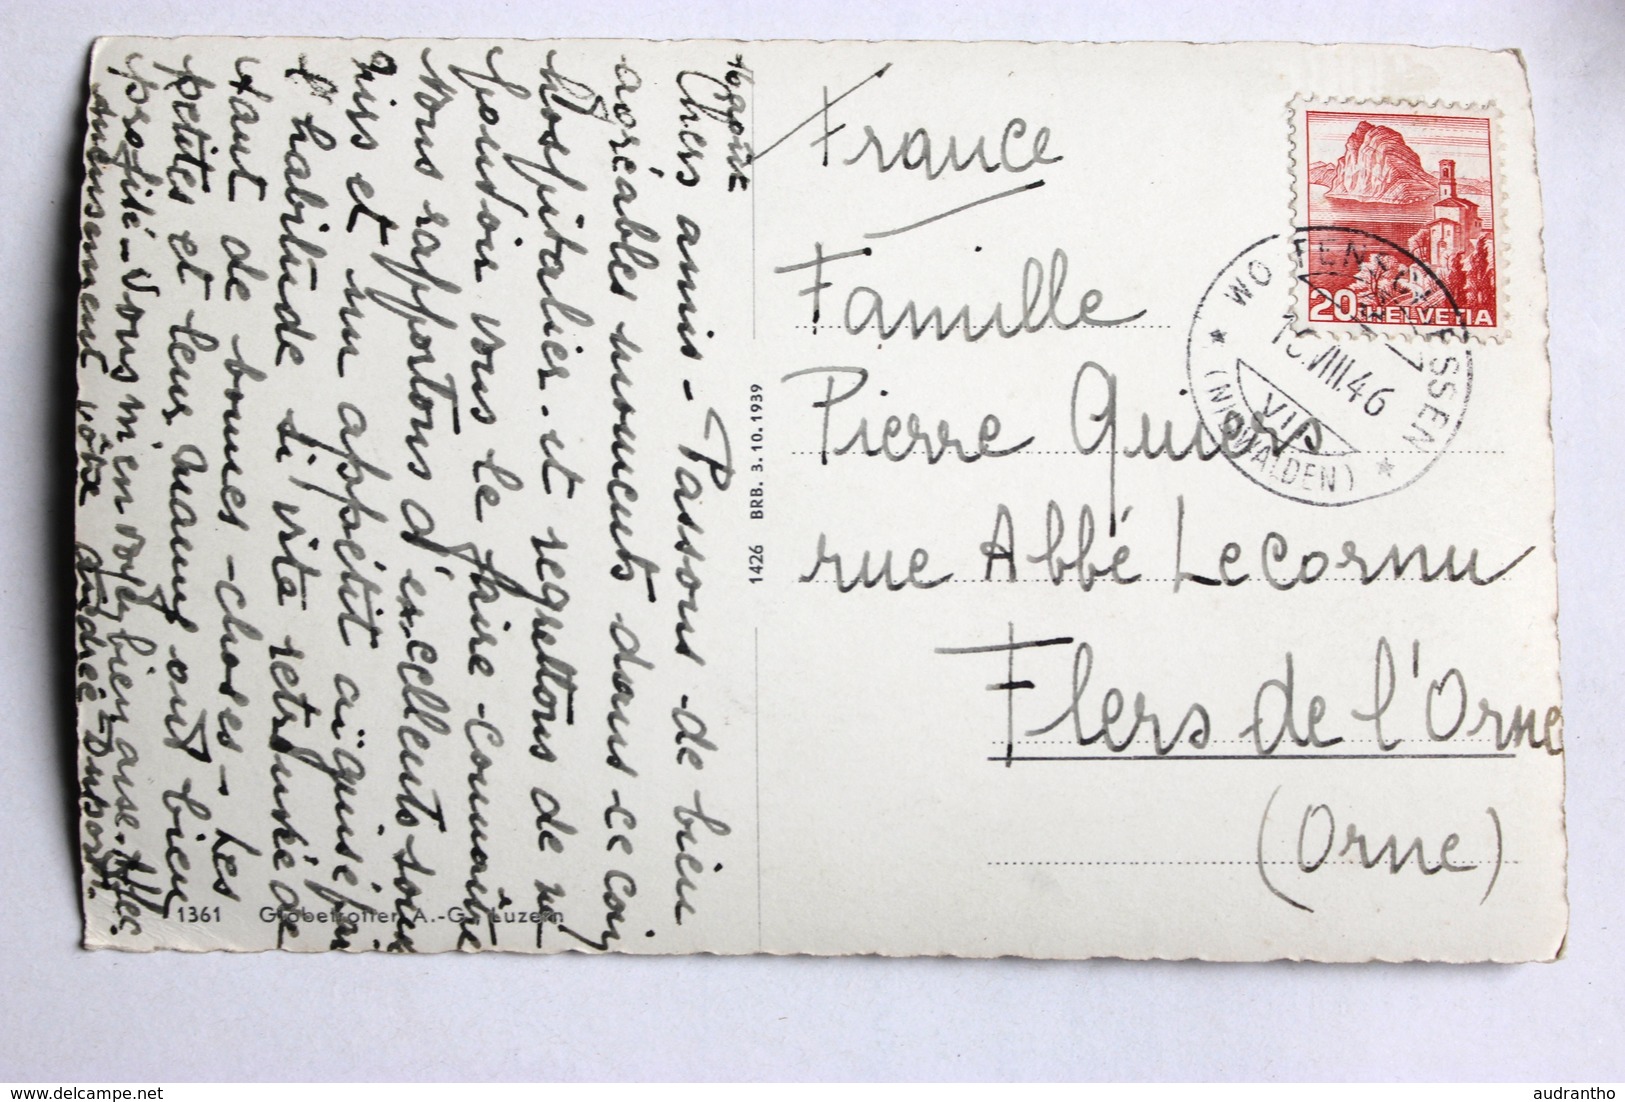 Chers amis - Passons de bien
agréables moments dans ce coin
hospitalier et regrettons de ne
pouvoir vous le faire connaître
Nous rapportons d'excellents souve
nirs et un appétit aiguisé par
l'habitude si vite retrouvée de
tant de bonnes choses - Les
petites et leur maman ont bien
profité - Vous m'en voyez bien aise.
Amicalement vôtre Andrée
France
Famille
Pierre Quiers
rue Abbé Lecornu
Flers de l'Orne
(Orne)
1426 BRB. 3.10.1939
1361 Globetrotter A.-G., Luzern
20 HELVETIA
VIII.46
(NIDWALDEN)
delcampe.net
audrantho